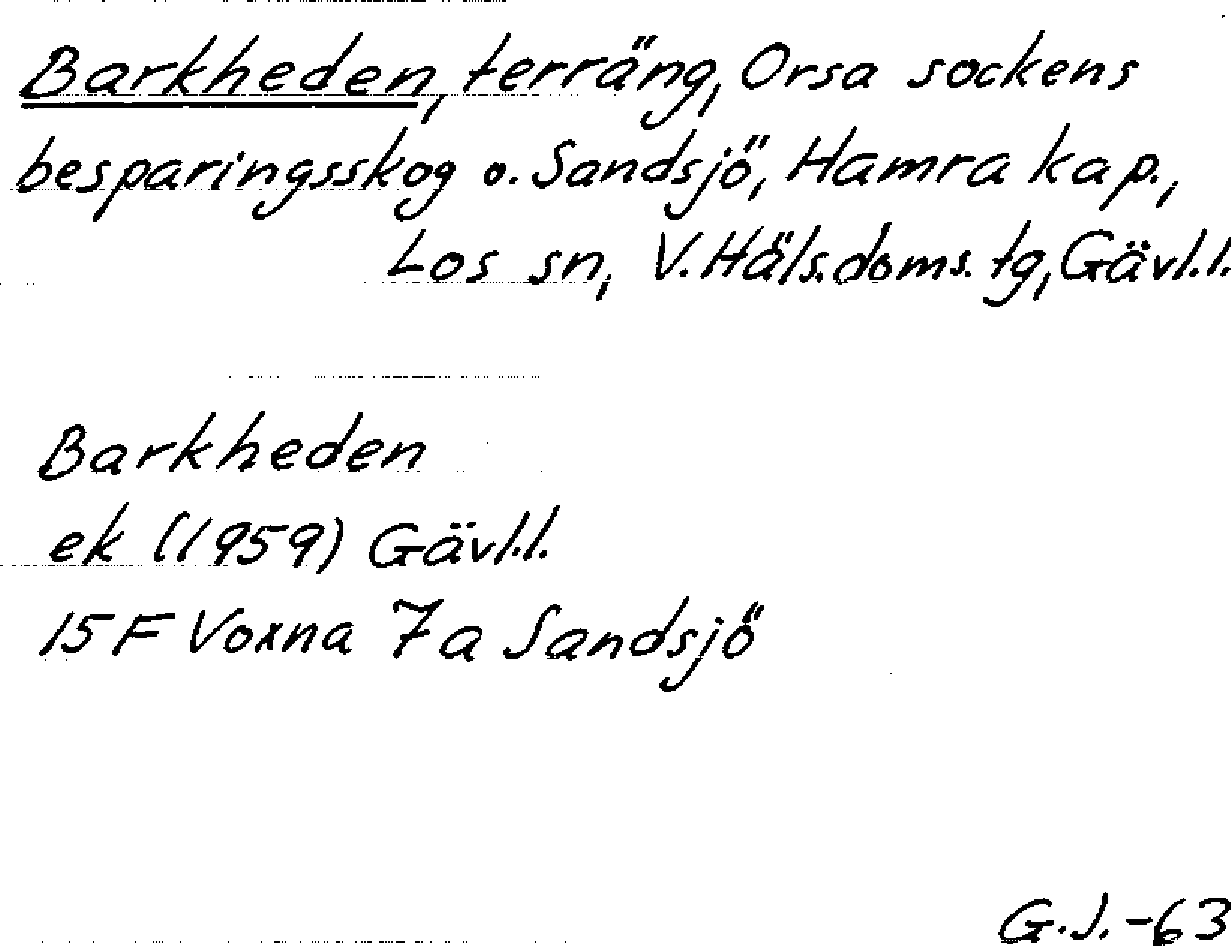 Barkheden, terräng, Orsa sockens
besparingsskog o. Sandsjö, Hamra kap.,
Los sn, V. Häls. doms. tg, Gävl.l.
Barkheden
ek (1959) Gävl.l.
15 F Voxna 7a Sandsjö
G.J.-63